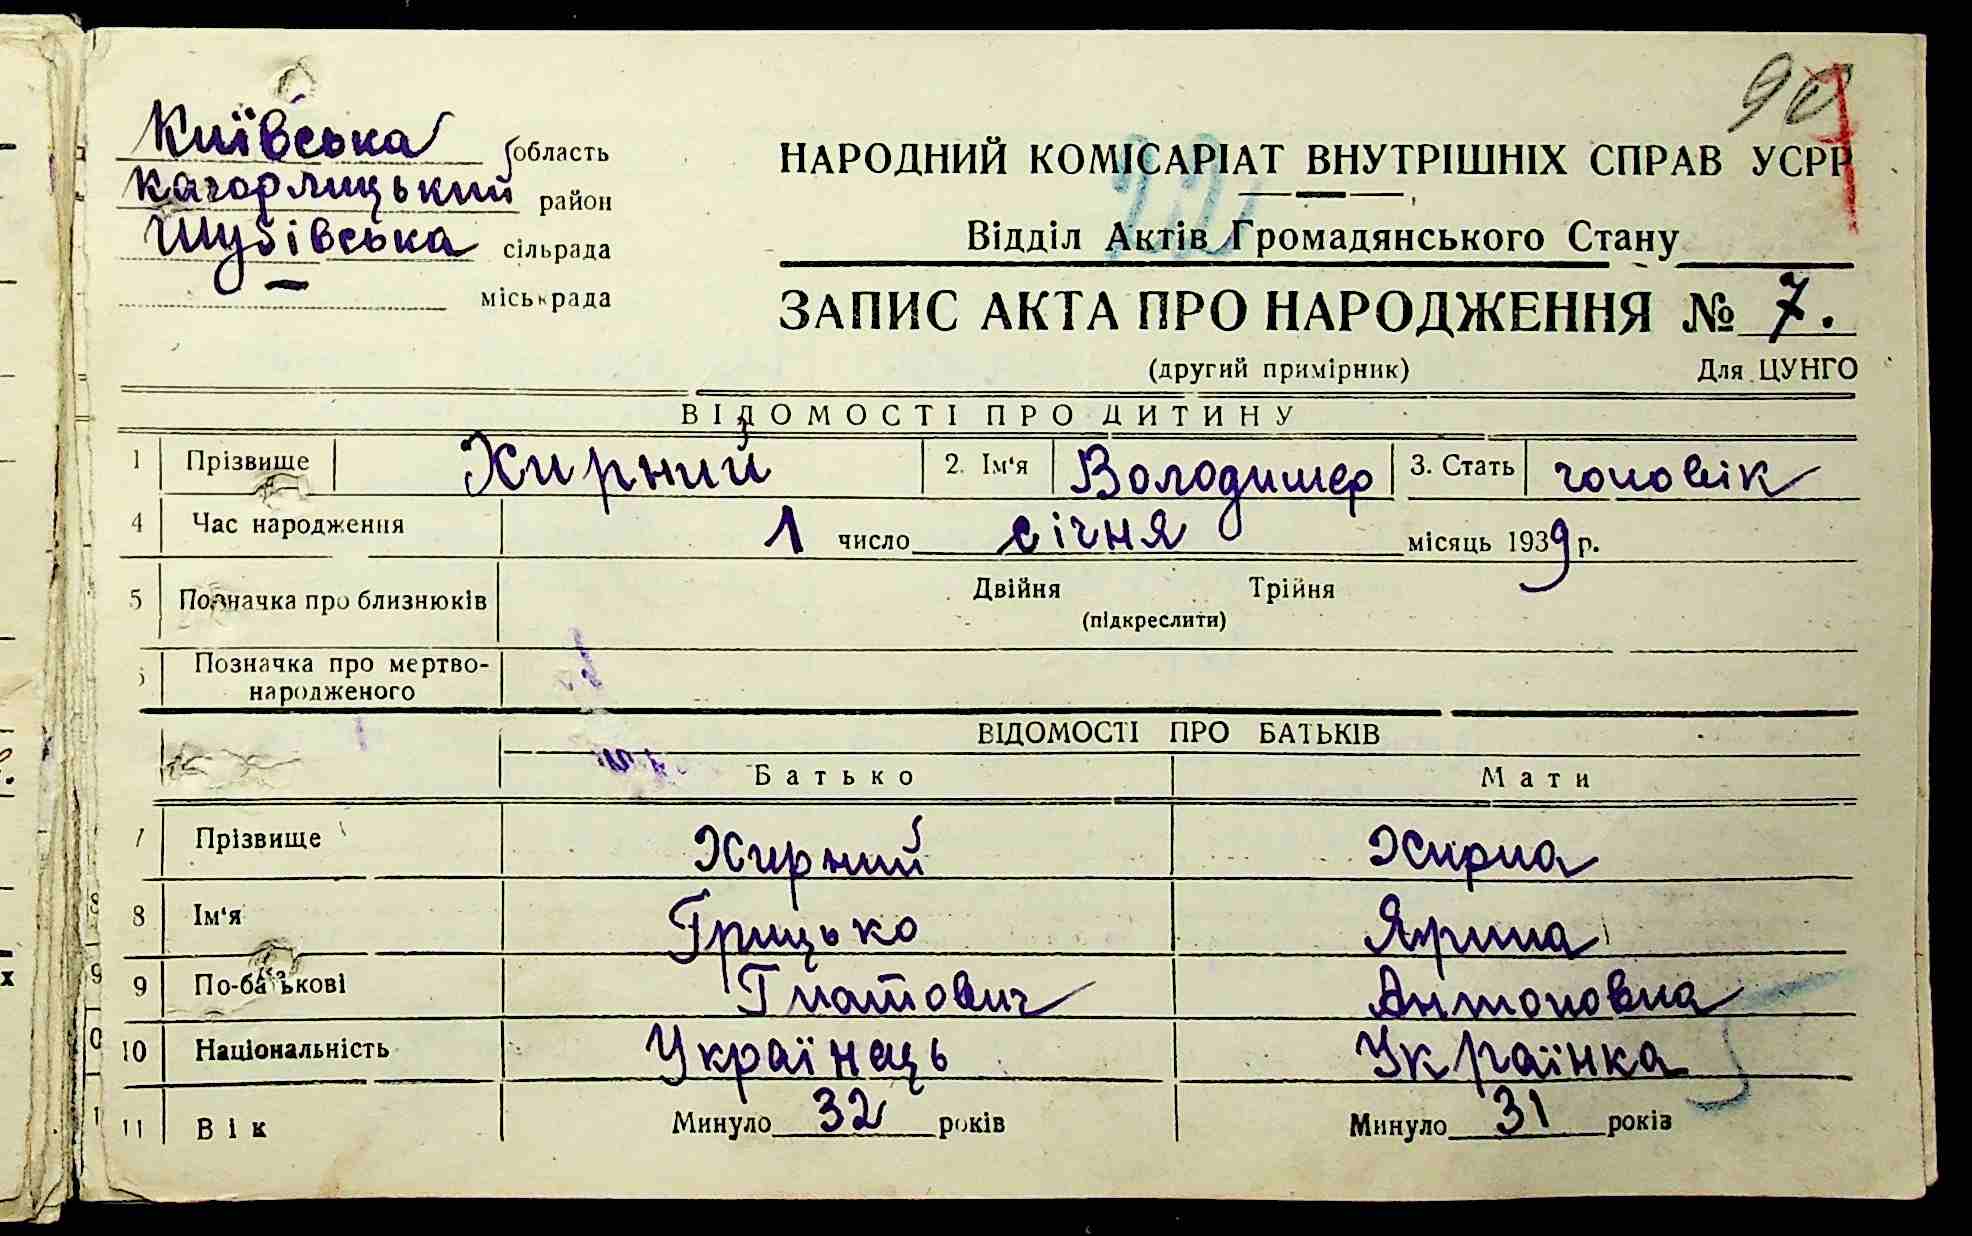 90
Київська область
Кагорлицький район
Шубівська сільрада
міськрада
НАРОДНИЙ КОМІСАРІАТ ВНУТРІШНІХ СПРАВ УСРР
22
Відділ Актів Громадянського Стану
ЗАПИС АКТА ПРО НАРОДЖЕННЯ № 7.
(другий примірник) Для ЦУНГО
ВІДОМОСТІ ПРО ДИТИНУ
1 Прізвище Жирний 2. Ім'я Володимер 3. Стать чоловік
4 Час народження 1 число січня місяць 1939 р.
5 Позначка про близнюків Двійня Трійня
(підкреслити)
Позначка про мертво-
народженого
ВІДОМОСТІ ПРО БАТЬКІВ
Батько Мати
7 Прізвище Жирний Жирна
8 Ім'я Грицько Ярина
9 По-батькові Гнатович Антоновна
10 Національність Українець Українка
11 Вік Минуло 32 років Минуло 31 років